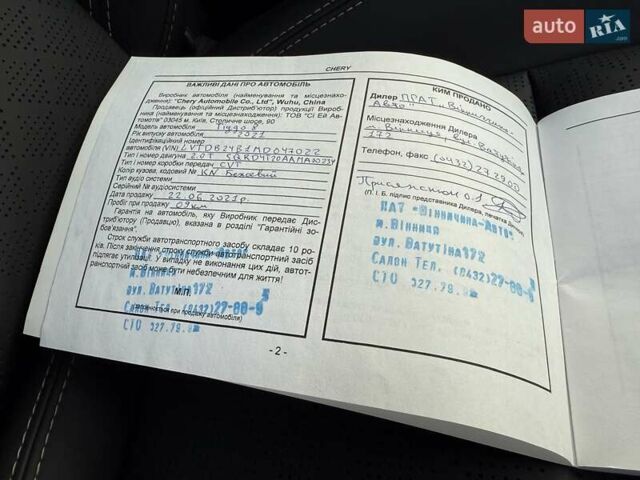 auto RIA.com
CHERY
ВАЖЛИВІ ДАНІ ПРО АВТОМОБІЛЬ
Виробник автомобіля (найменування та місцезнаход-
ження): "Chery Automobile Co., Ltd", Wuhu, China
Продавець (офіційний Дистриб'ютор) продукції Вироб-
ника (найменування та місцезнаходження): ТОВ "Сі Ей Ав-
томотів" 03045 м. Київ, Столичне шосе, 90
Модель автомобіля Tiggo 8
Рік випуску автомобіля 2021
Ідентифікаційний номер
автомобіля (VIN) LVTDB24B1MD047022
Тип і номер двигуна 2.0T
Тип і номер коробки передач CVT
Колір кузова, кодовий № KN Бежевий
Тип аудіо системи
Серійний № аудіосистеми
Дата продажу 22.06.2021р.
Пробіг при продажу 09км
Гарантія на автомобіль, яку Виробник передає Дис-
триб'ютору (Продавцю), вказана в розділі "Гарантійні зо-
бов'язання".
Строк служби автотранспортного засобу складає 10 ро-
ків. Після закінчення строку служби автотранспортний засіб
підлягає утилізації. У випадку не виконання цих дій, автот-
ранспортний засіб може бути небезпечним для життя!
м.Вінниця
М.П.
вул. Ватутіна 172
Салон Тел. (0432) 27-80-9
(заповнюється при продажу автомобіля)
СТО
- 2 -
КИМ ПРОДАНО
Дилер ПГАТ "Вінничина-
Авто"
Місцезнаходження Дилера
м. Вінниця, вул. Ватутіна
172
Телефон, факс (0432) 27 29 00
(П. І. Б. підпис представника Дилера, печатка Дилера)
"Вінничина-Авто"
м.Вінниця
вул. Ватутіна 172
Салон Тел. (0432) 27-80-9
СТО